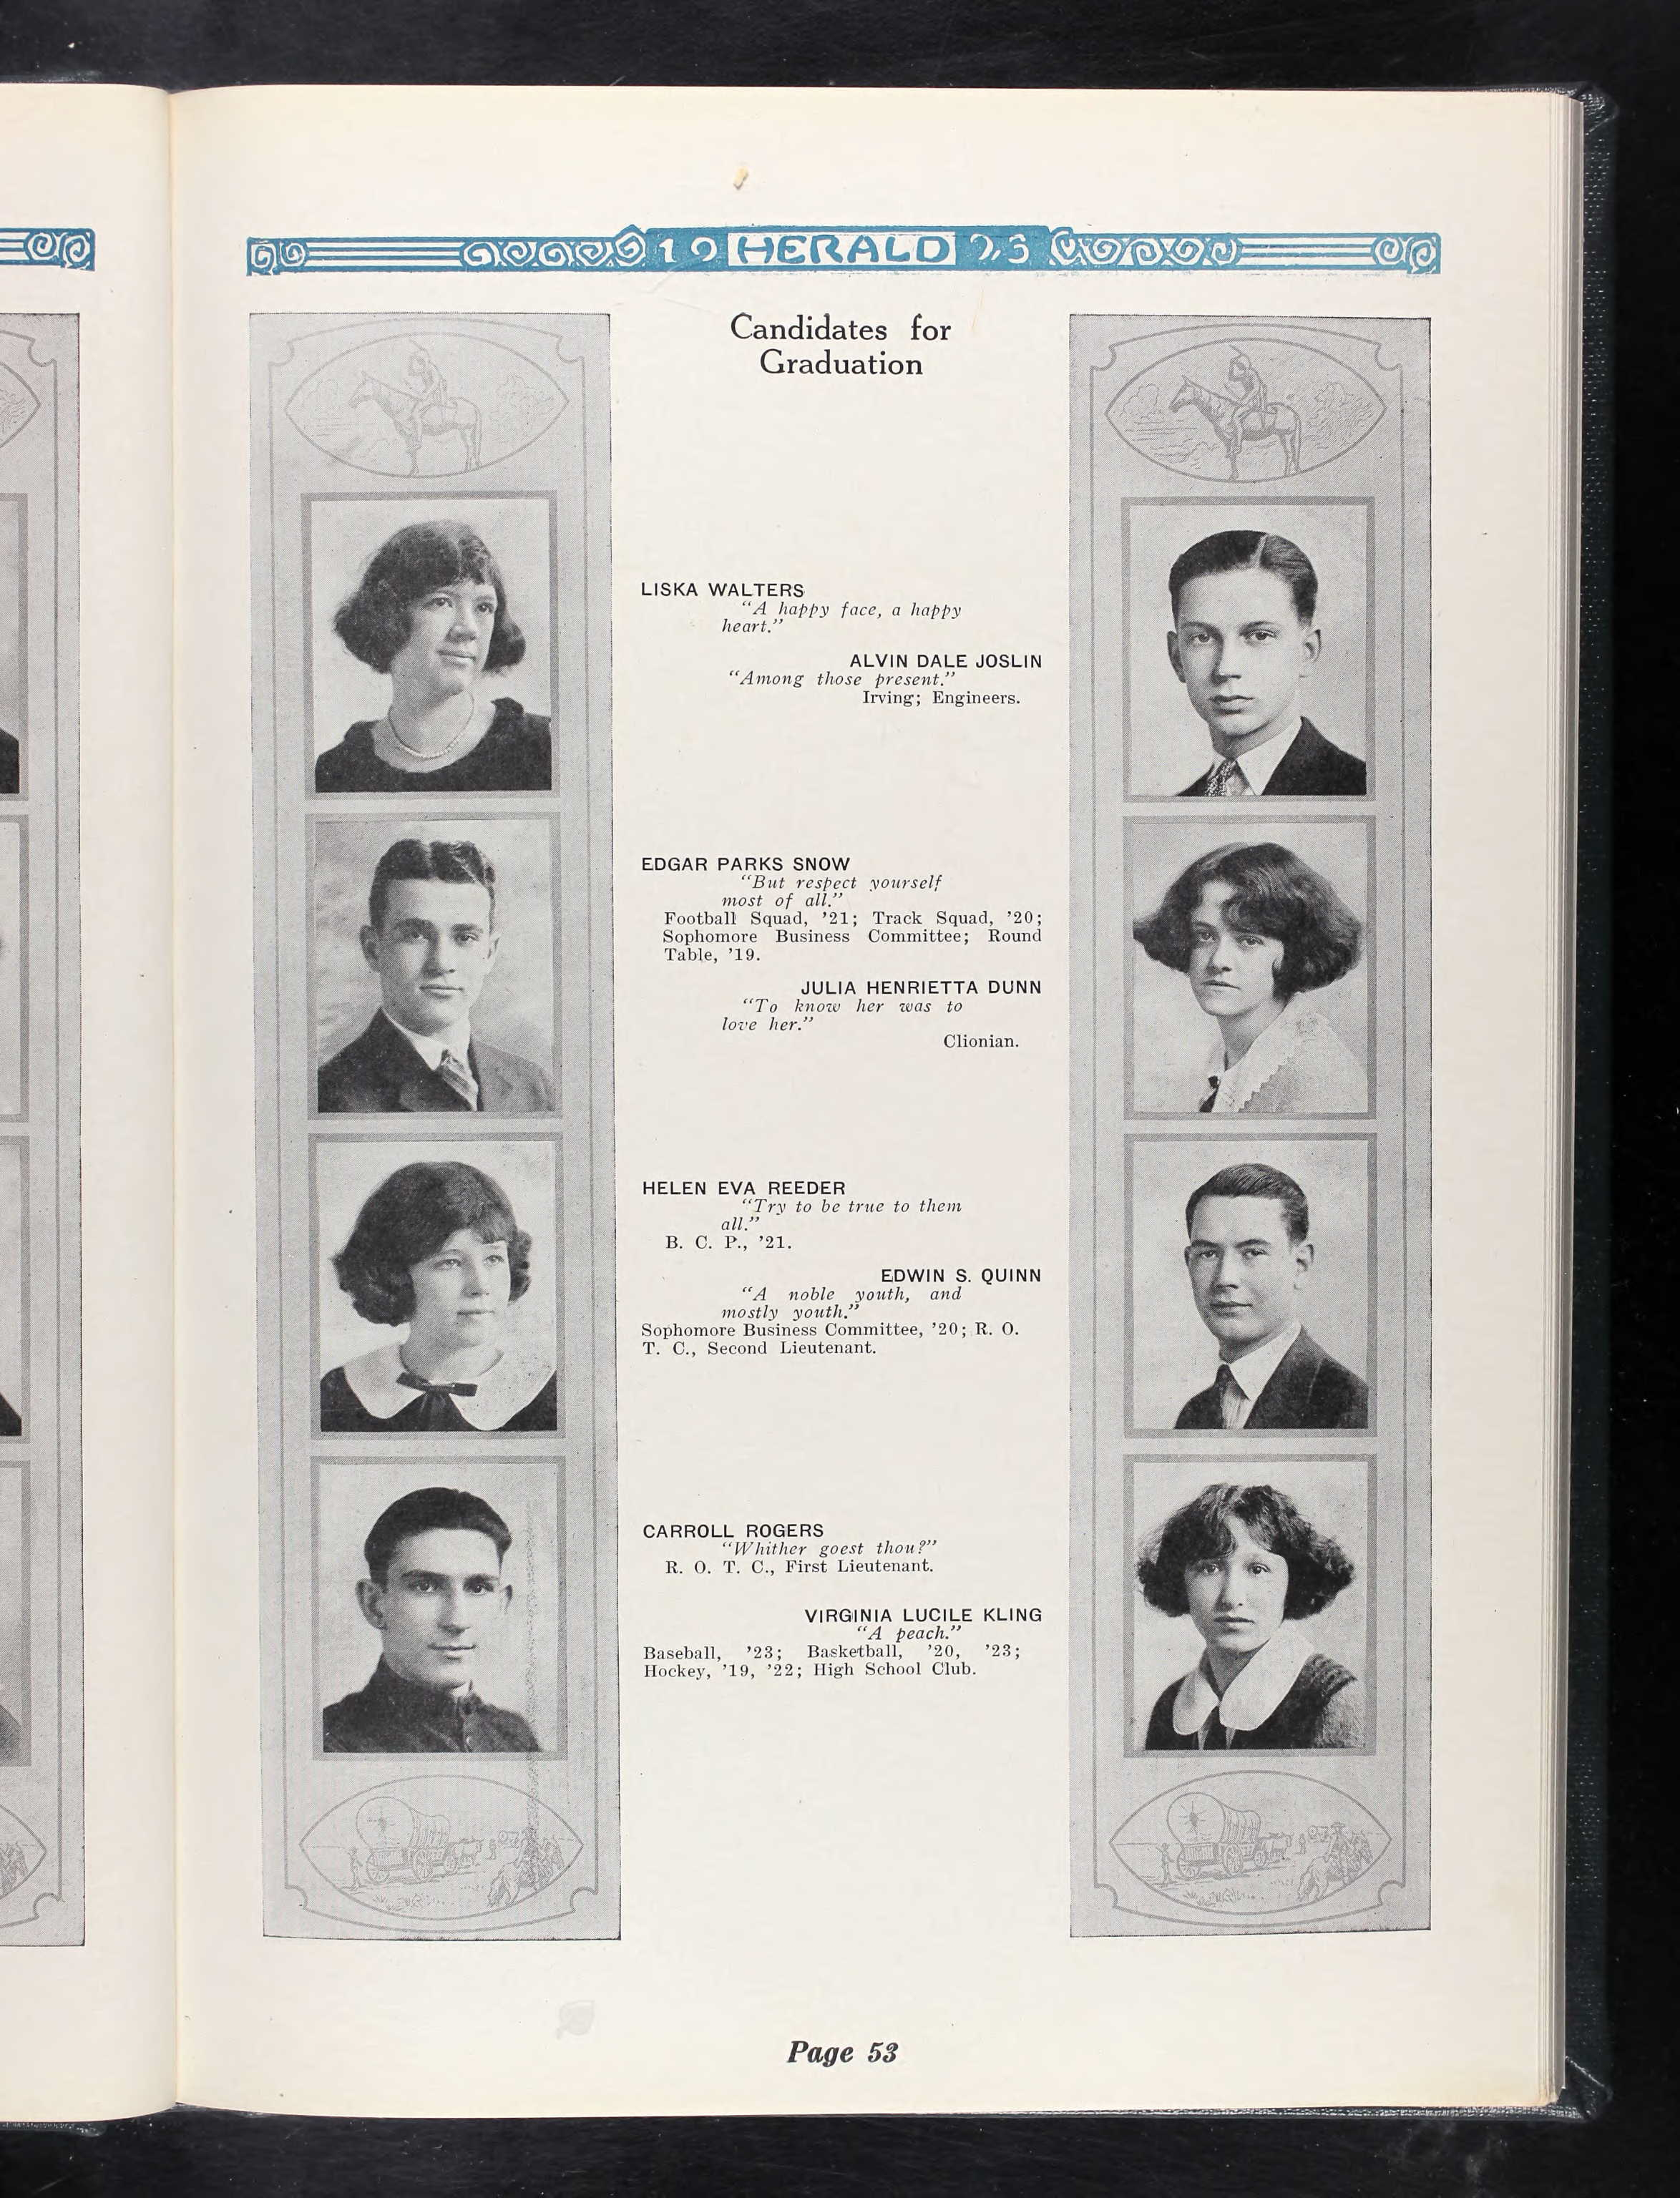 19 HERALD 23
Candidates for
Graduation
LISKA WALTERS
“A happy face, a happy
heart.”
ALVIN DALE JOSLIN
“Among those present.”
Irving; Engineers.
EDGAR PARKS SNOW
“But respect yourself
most of all.”
Football Squad, ’21; Track Squad, ’20;
Sophomore Business Committee; Round
Table, ’19.
JULIA HENRIETTA DUNN
“To know her was to
love her.”
Clionian.
HELEN EVA REEDER
“Try to be true to them
all.”
B. C. P., ’21.
EDWIN S. QUINN
“A noble youth, and
mostly youth.”
Sophomore Business Committee, ’20; R. O.
T. C., Second Lieutenant.
CARROLL ROGERS
“Whither goest thou?”
R. O. T. C., First Lieutenant.
VIRGINIA LUCILE KLING
“A peach.”
Baseball, ’23; Basketball, ’20, ’23;
Hockey, ’19, ’22; High School Club.
Page 53